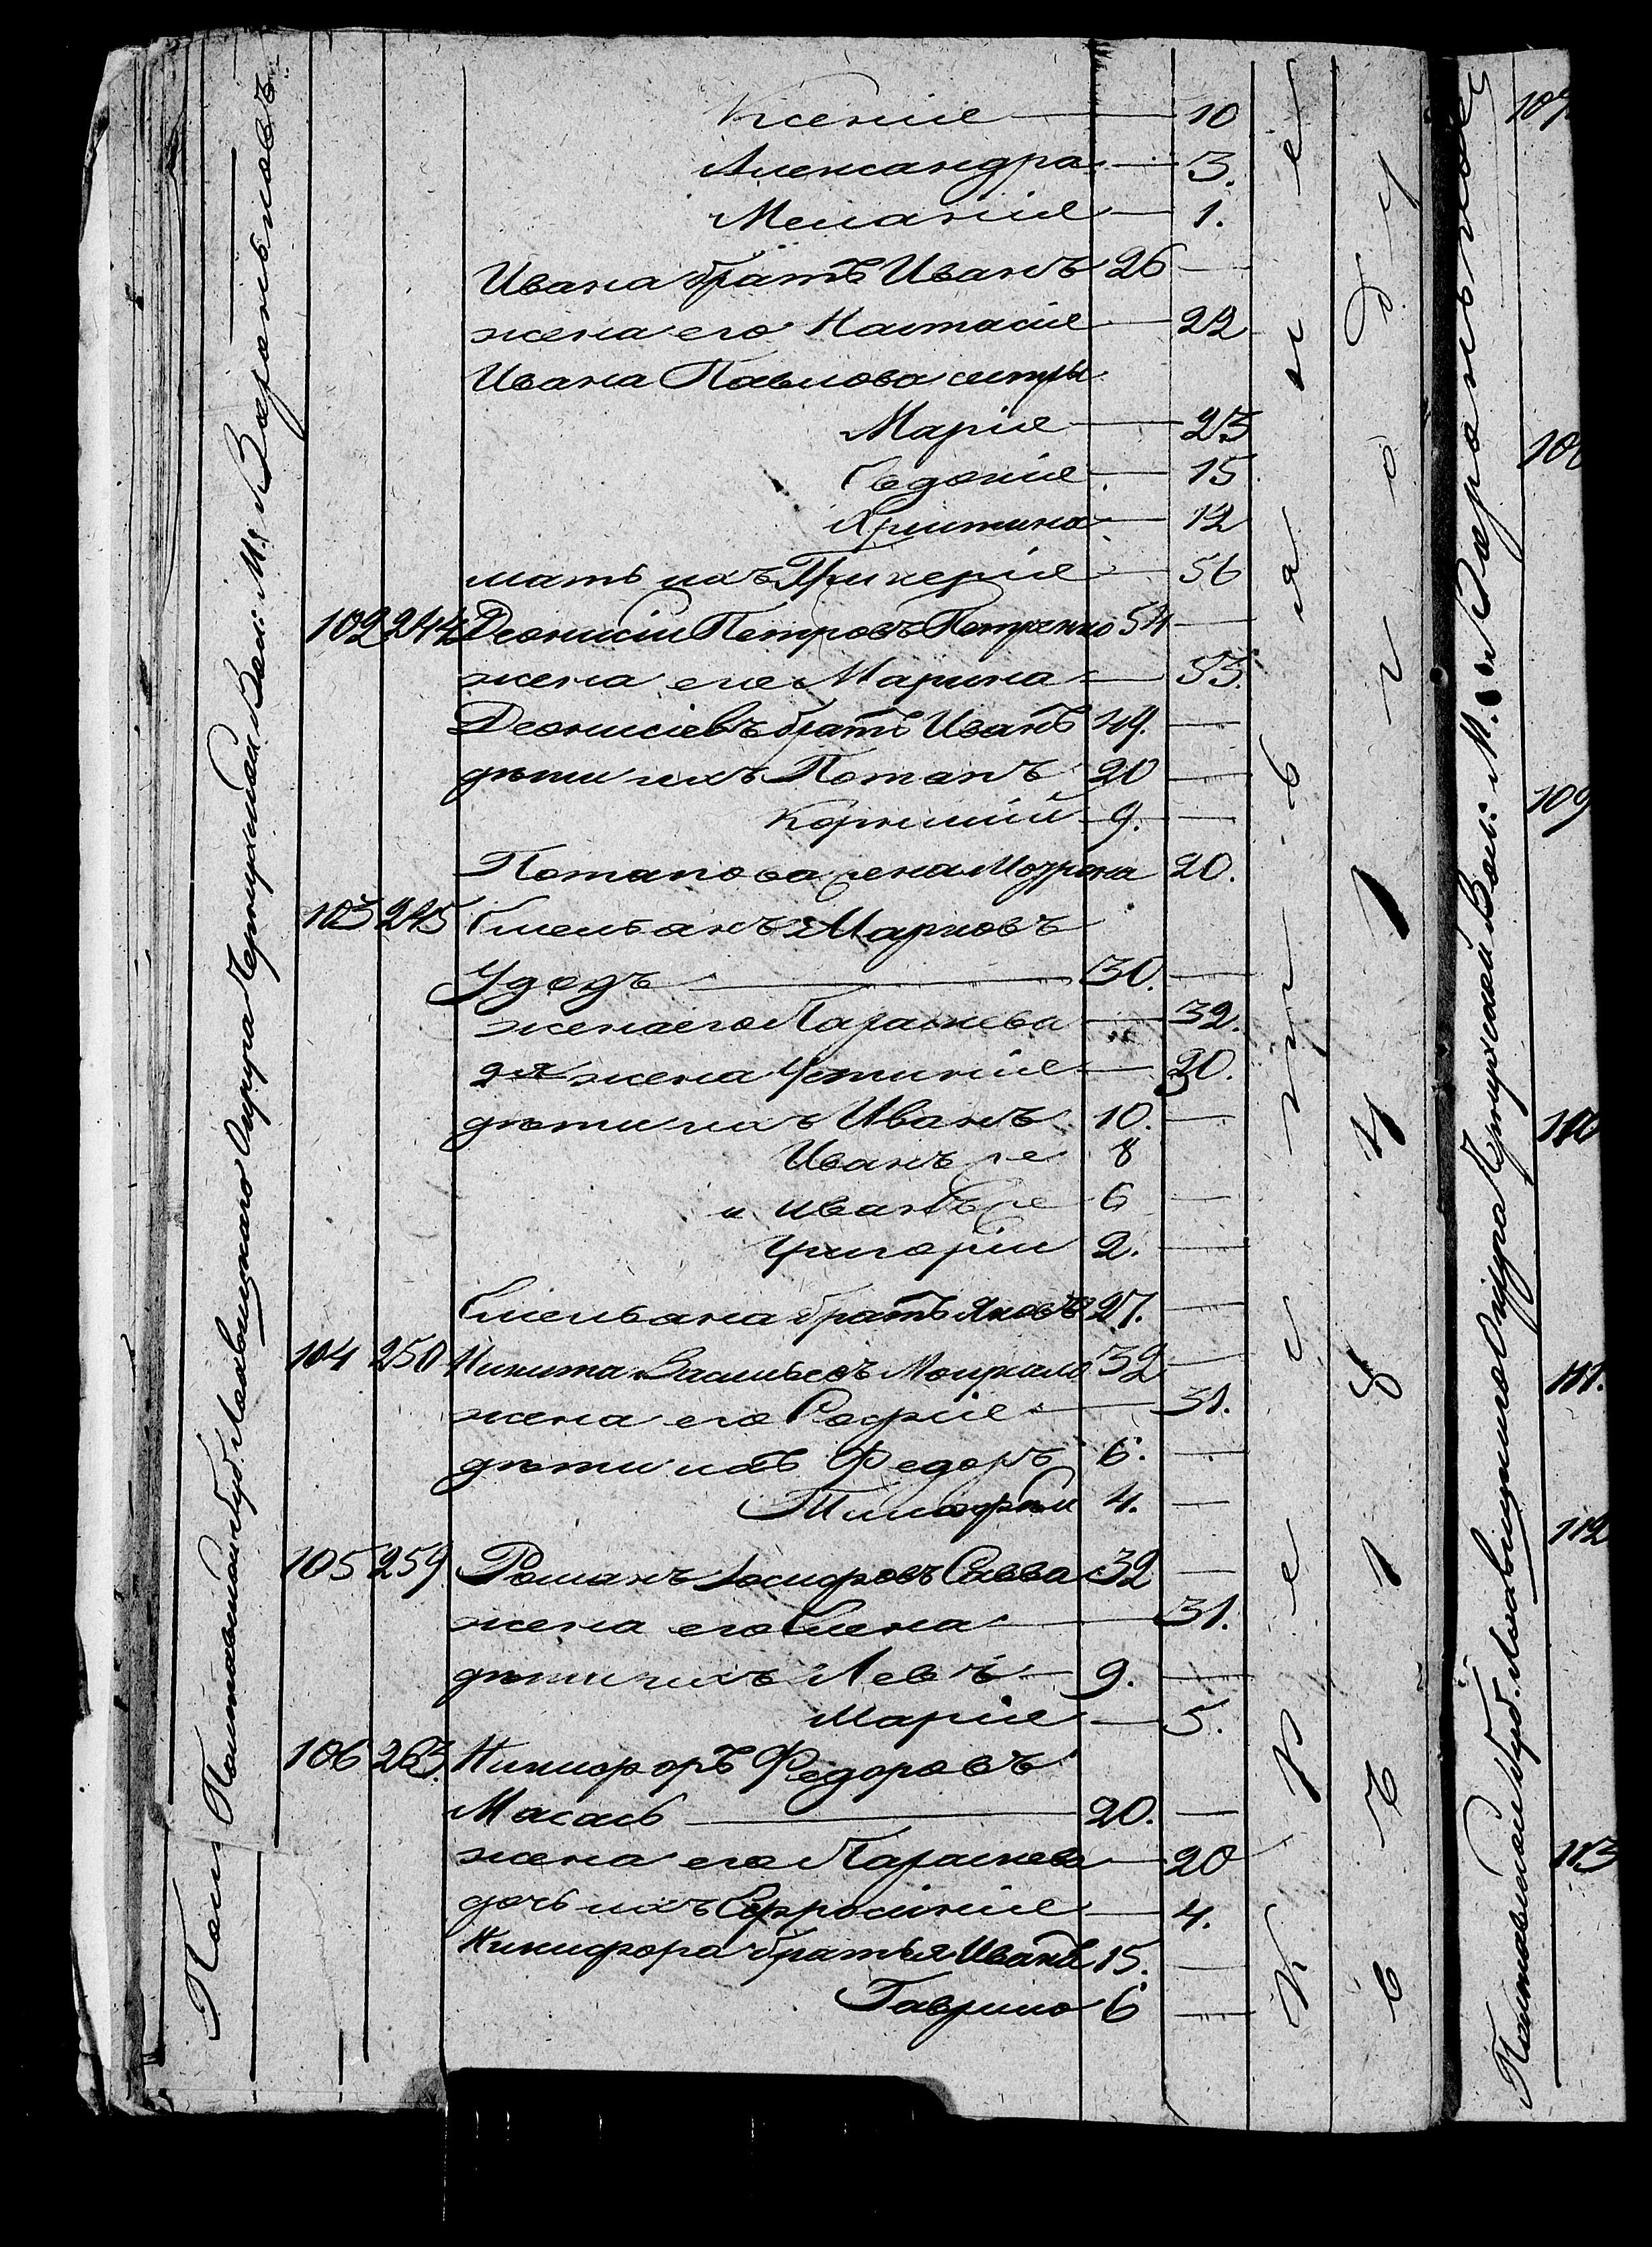 Полтавской Губ. Лохвицкаго Округа Чернухской Вол: М: Вороньковъ
Ксенія — 10
Александра — 3.
Меланія — 1.
Ивана братъ Иванъ 26 —
жена его Настасія — 22
Ивана Павлова сестры
Марія — 23
Евдокія — 15
Христина — 12
мать ихъ Гликерія — 56
102 244 Деонисій Петровъ 54 —
жена его Марина — 53.
Деонисіевъ братъ Иванъ 49. —
дѣти ихъ Потапъ 20 —
Корнилій 9. —
Потапова жена Мотрона 20.
103 245 Емельянъ Марковъ
Удодъ — 30. —
жена его Параскева — 32.
2я жена Устинія — 20.
дѣти ихъ Иванъ 10. —
Иванъ же 8
и Иванъ же 6 —
Григорій 2. —
Емельяна братъ Яковъ 27. —
104 250 Никита Васильевъ 32 —
жена его Софія — 31.
дѣти ихъ Федоръ 6. —
Тимофей 4. —
105 259 Романъ Іосифовъ Савва 32 —
жена его Елена — 31.
дѣти ихъ Левъ — 9. —
Марія — 5.
106 263. Никифоръ Федоровъ
Масась — 20. —
жена его Параскева — 20
дочь ихъ Ефросинія — 4.
Никифора братья Иванъ 15. —
Гаврило 6 —
Переселяніе
въ 1841 году
Полтавской Губ. Лохвицкаго Округа Чернухской Вол: М.
107
108
109
110
111.
112
113